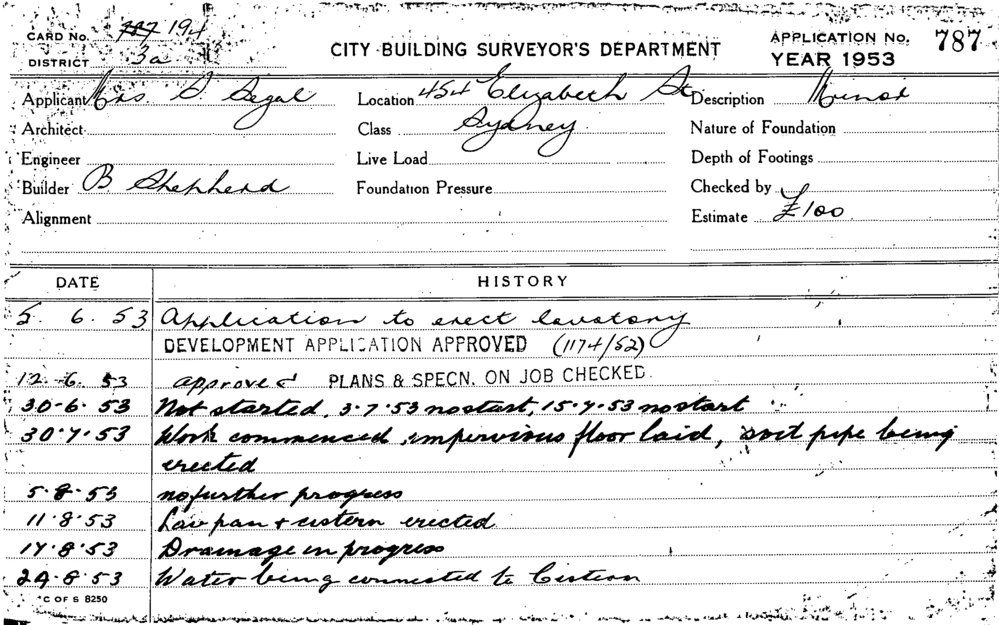 CARD No. 787 194
DISTRICT 3a
CITY BUILDING SURVEYOR'S DEPARTMENT
APPLICATION No. 787
YEAR 1953
Applicant Mrs. S. Segal
Location 454 Elizabeth St
Description Minor
Architect
Class Sydney
Nature of Foundation
Engineer
Live Load
Depth of Footings
Builder B Shepherd
Foundation Pressure
Checked by
Alignment
Estimate £100
DATE HISTORY
5. 6. 53 Application to erect lavatory
DEVELOPMENT APPLICATION APPROVED (1174/52)
12.-6. 53 approved PLANS & SPECN. ON JOB CHECKED.
30-6. 53 Not started, 3.7.53 no start, 15.7.53 no start
30.7.53 Work commenced, impervious floor laid, soil pipe being
erected
5.8.53 no further progress
11.8.53 Lav pan + cistern erected
17.8.53 Drainage in progress
24.8.53 Water being connected to Cistern
C OF S 8250